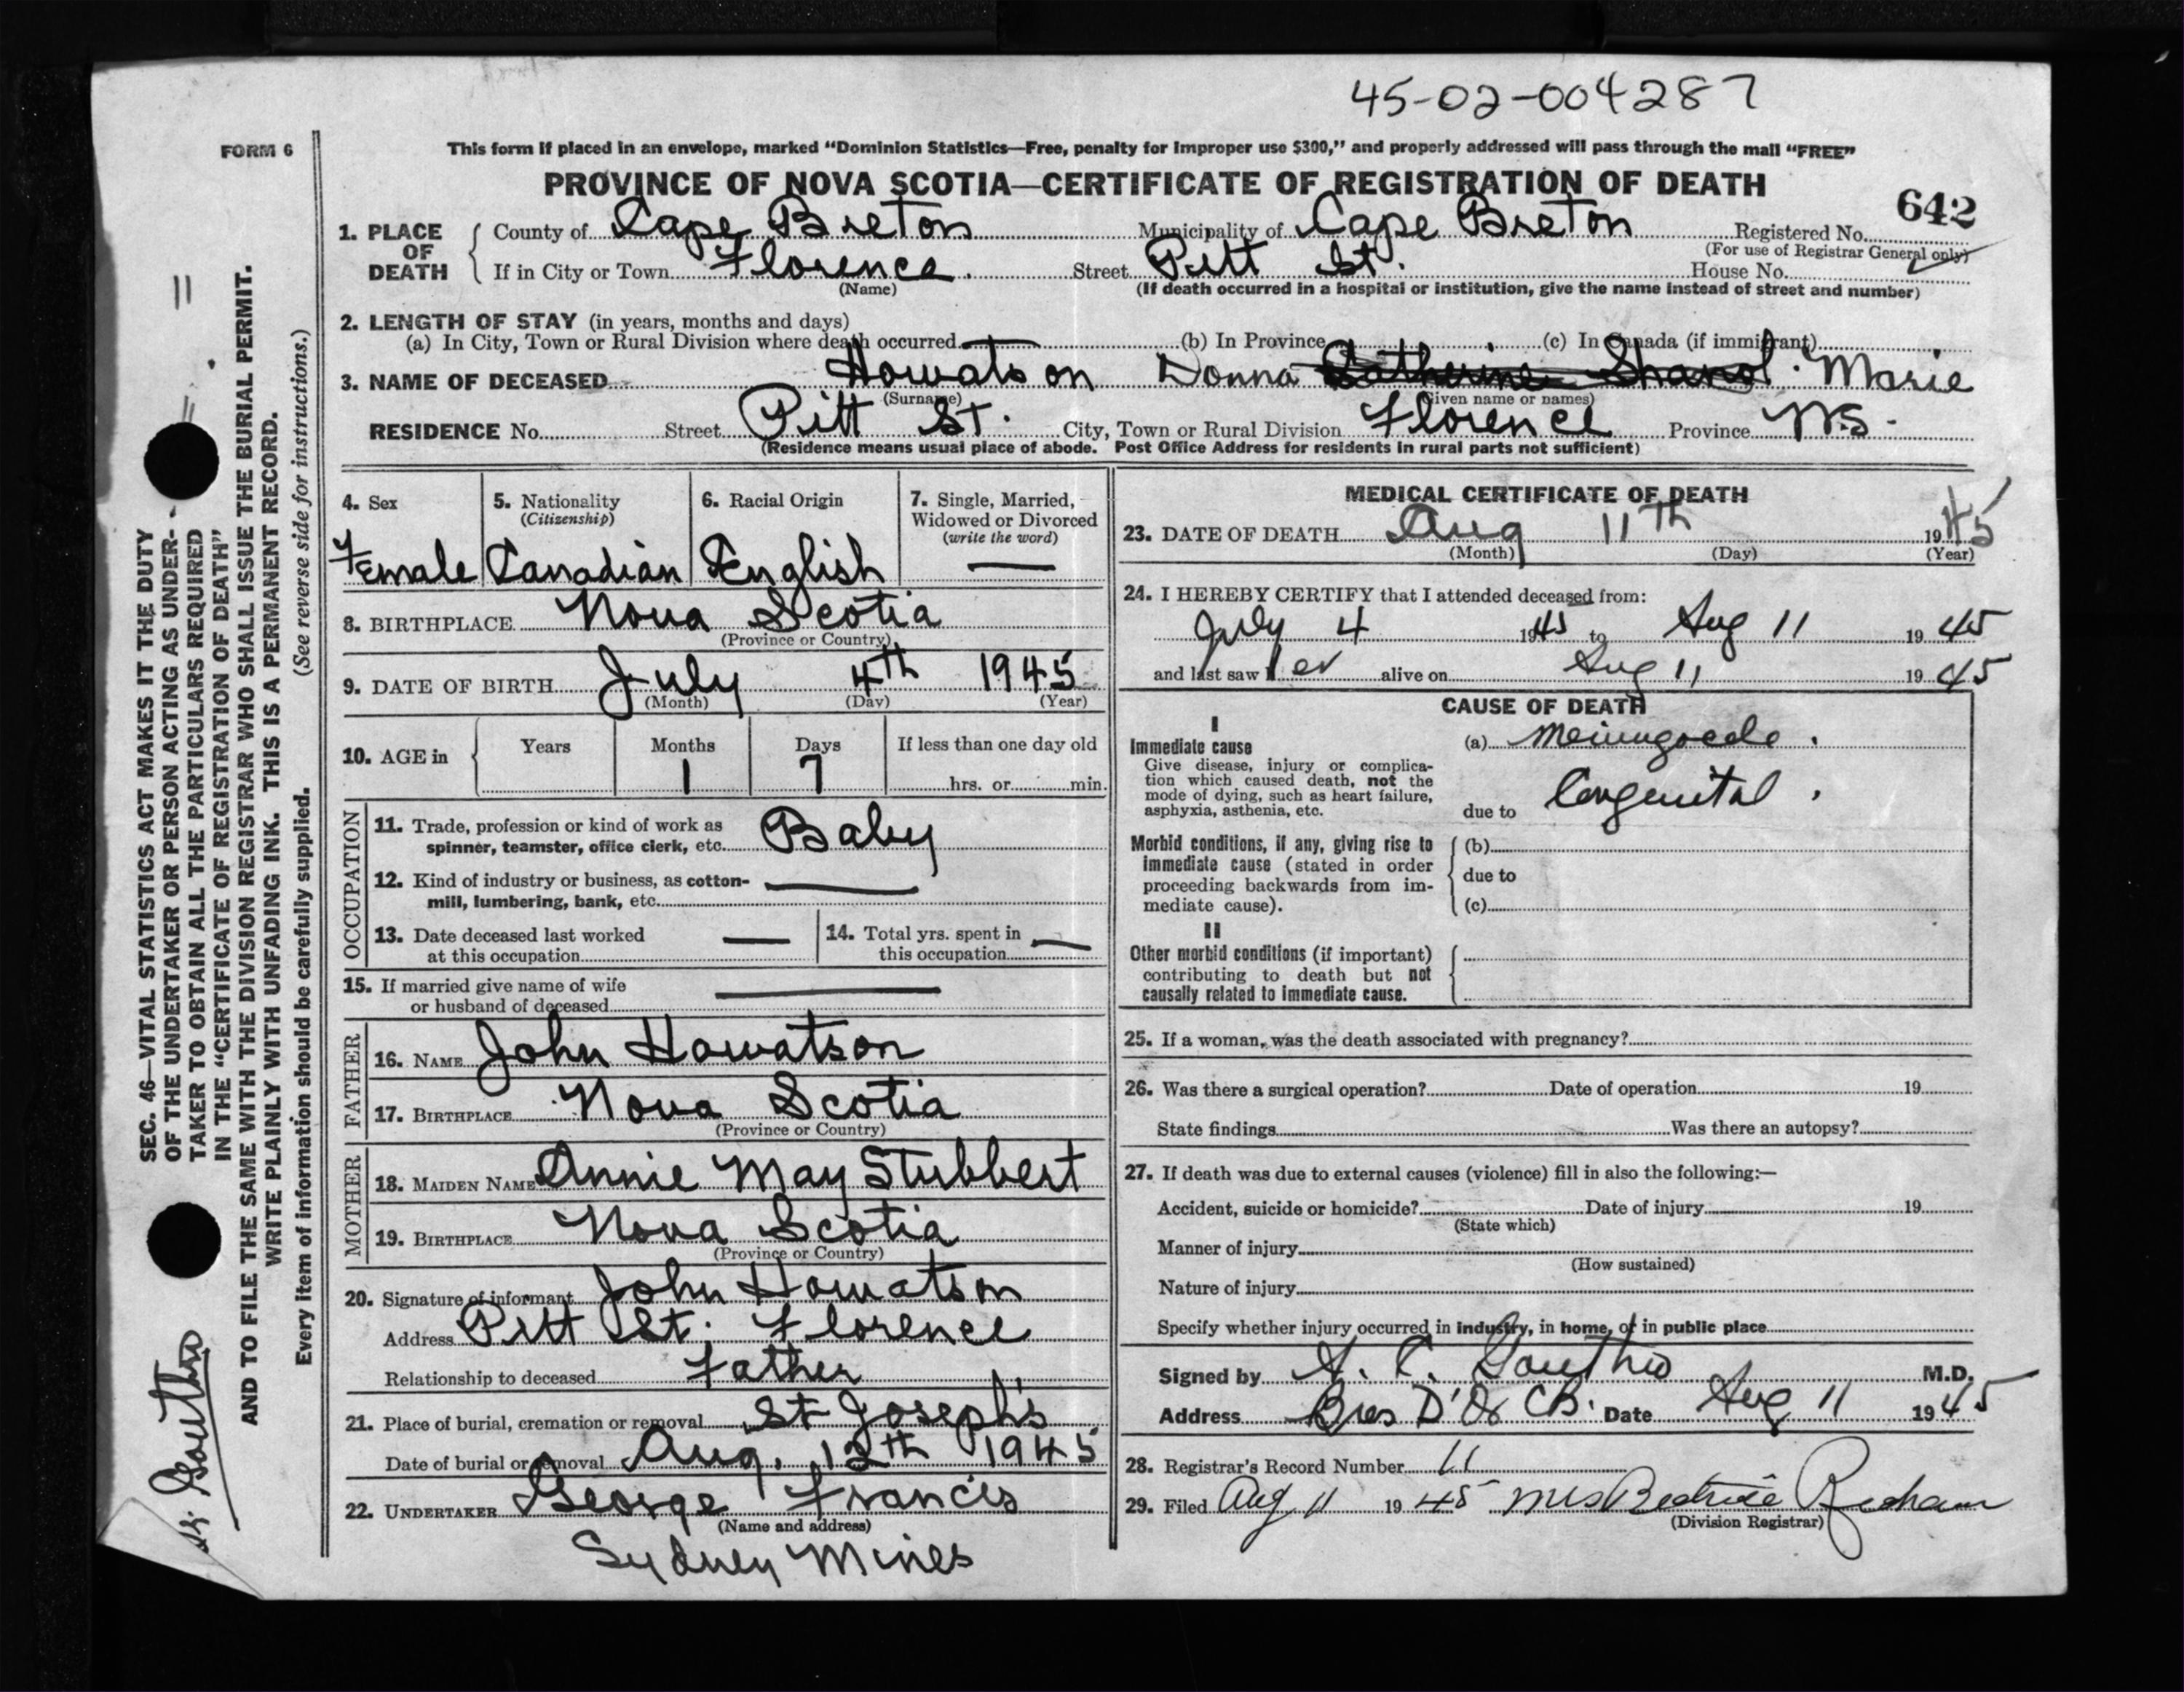 45-02-004287
FORM 6
This form if placed in an envelope, marked "Dominion Statistics—Free, penalty for improper use $300," and properly addressed will pass through the mail "FREE"
PROVINCE OF NOVA SCOTIA—CERTIFICATE OF REGISTRATION OF DEATH
642
1. PLACE OF DEATH
County of Cape Breton Municipality of Cape Breton Registered No.
(For use of Registrar General only)
If in City or Town Florence. Street Pitt St. House No.
(Name) (If death occurred in a hospital or institution, give the name instead of street and number)
2. LENGTH OF STAY (in years, months and days)
(a) In City, Town or Rural Division where death occurred — (b) In Province (c) In Canada (if immigrant)
3. NAME OF DECEASED Howatson Donna Catherine Marie
(Surname) (Given name or names)
RESIDENCE No. Street Pitt St. City, Town or Rural Division Florence Province N.S.
(Residence means usual place of abode. Post Office Address for residents in rural parts not sufficient)
4. Sex
Female
5. Nationality
(Citizenship)
Canadian
6. Racial Origin
English
7. Single, Married, Widowed or Divorced
(write the word)
—
8. BIRTHPLACE Nova Scotia
(Province or Country)
9. DATE OF BIRTH July 4th 1945
(Month) (Day) (Year)
10. AGE in Years Months Days If less than one day old
1 7 hrs. or min.
OCCUPATION
11. Trade, profession or kind of work as Baby
spinner, teamster, office clerk, etc.
12. Kind of industry or business, as cotton- —
mill, lumbering, bank, etc.
13. Date deceased last worked — 14. Total yrs. spent in —
at this occupation this occupation
15. If married give name of wife —
or husband of deceased
FATHER
16. NAME John Howatson
17. BIRTHPLACE Nova Scotia
(Province or Country)
MOTHER
18. MAIDEN NAME Annie May Stubbert
19. BIRTHPLACE Nova Scotia
(Province or Country)
20. Signature of informant John Howatson
Address Pitt St. Florence
Relationship to deceased Father
21. Place of burial, cremation or removal St Joseph's
Date of burial or removal Aug. 12th 1945
22. UNDERTAKER George Francis
(Name and address)
Sydney Mines
MEDICAL CERTIFICATE OF DEATH
23. DATE OF DEATH Aug 11th 1945
(Month) (Day) (Year)
24. I HEREBY CERTIFY that I attended deceased from:
July 4 1945 to Aug 11 1945
and last saw her alive on Aug 11 1945
CAUSE OF DEATH
I
Immediate cause (a) Meningocele.
Give disease, injury or complica-
tion which caused death, not the
mode of dying, such as heart failure,
asphyxia, asthenia, etc. due to Congenital.
Morbid conditions, if any, giving rise to (b)
immediate cause (stated in order
proceeding backwards from im- due to
mediate cause). (c)
II
Other morbid conditions (if important)
contributing to death but not
causally related to immediate cause.
25. If a woman, was the death associated with pregnancy?
26. Was there a surgical operation? Date of operation 19
State findings Was there an autopsy?
27. If death was due to external causes (violence) fill in also the following:—
Accident, suicide or homicide? Date of injury 19
(State which)
Manner of injury
(How sustained)
Nature of injury
Specify whether injury occurred in industry, in home, or in public place
Signed by A. C. Gouthro M.D.
Address Bras D'Or CB. Date Aug 11 1945
28. Registrar's Record Number 11
29. Filed Aug 11 1945 Mrs Beatrice
(Division Registrar)
SEC. 46—VITAL STATISTICS ACT MAKES IT THE DUTY
OF THE UNDERTAKER OR PERSON ACTING AS UNDER-
TAKER TO OBTAIN ALL THE PARTICULARS REQUIRED
IN THE "CERTIFICATE OF REGISTRATION OF DEATH"
AND TO FILE THE SAME WITH THE DIVISION REGISTRAR WHO SHALL ISSUE THE BURIAL PERMIT.
WRITE PLAINLY WITH UNFADING INK. THIS IS A PERMANENT RECORD.
Every item of information should be carefully supplied. (See reverse side for instructions.)
Dr. Gouthro